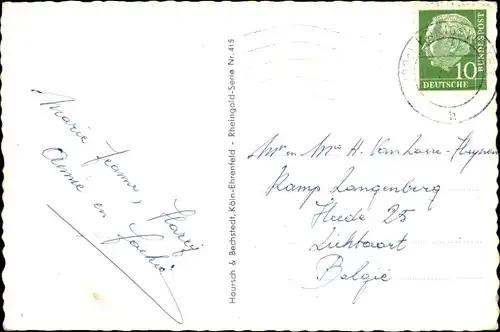 Marie Jeanne, Harry
Annie en
Hoursch & Bechstedt, Köln-Ehrenfeld - Rheingold-Serie Nr. 415
DEUTSCHE BUNDESPOST
10
h
Mr en Mw H. Van Loere-
Kamp Langenberg
Heide 25
Lichtaart
Belgie